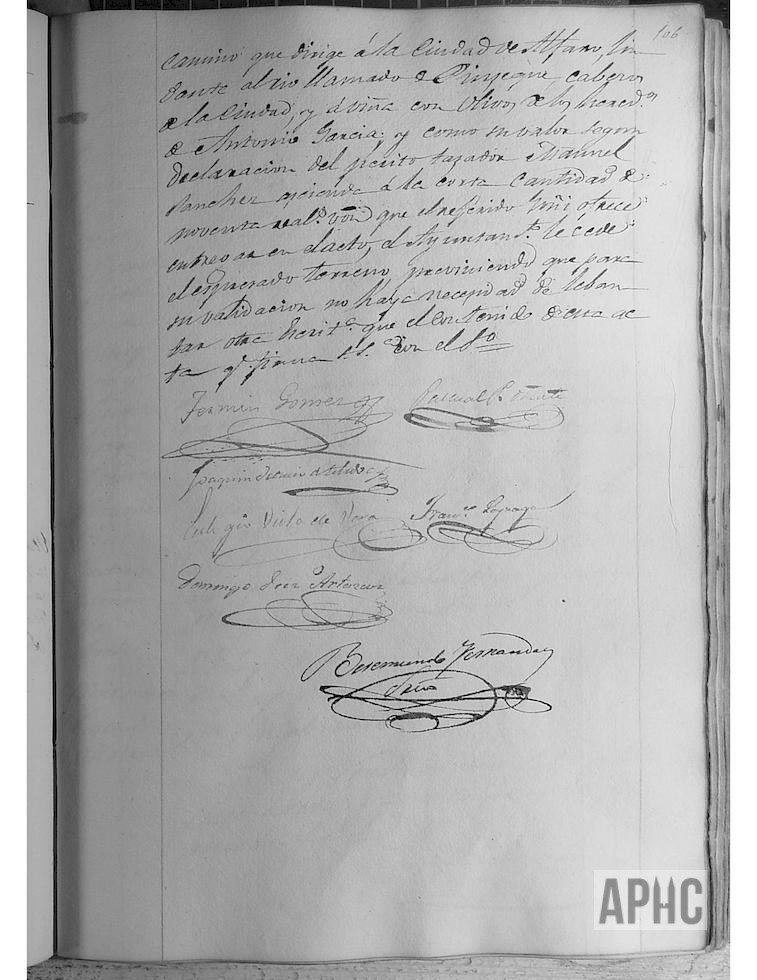 106
camino que dirige á la Ciudad de Alfaro, lin-
dante al rio llamado de Pinyeque, cabezos
de la Ciudad, y á viña con Olivos de los hered.os
de Antonio Garcia; y como su valor segun
declaracion del perito tasador Manuel
Sanchez asciende á la corta cantidad de
noventa real.s von que el referido ofrece
entregar en el acto, el Ayuntam.to le cede
el espresado terreno previniendo que para
su validacion no haya necesidad de leban-
tar otra Escrit.a que el contenido de esta ac-
ta q.e firma S.S. con el S.o
Fermin Gomez
Pascual
Joaquin
Vielo de Vera
Fran.co
Domingo
Beremundo Fernandez
Srio
APHC